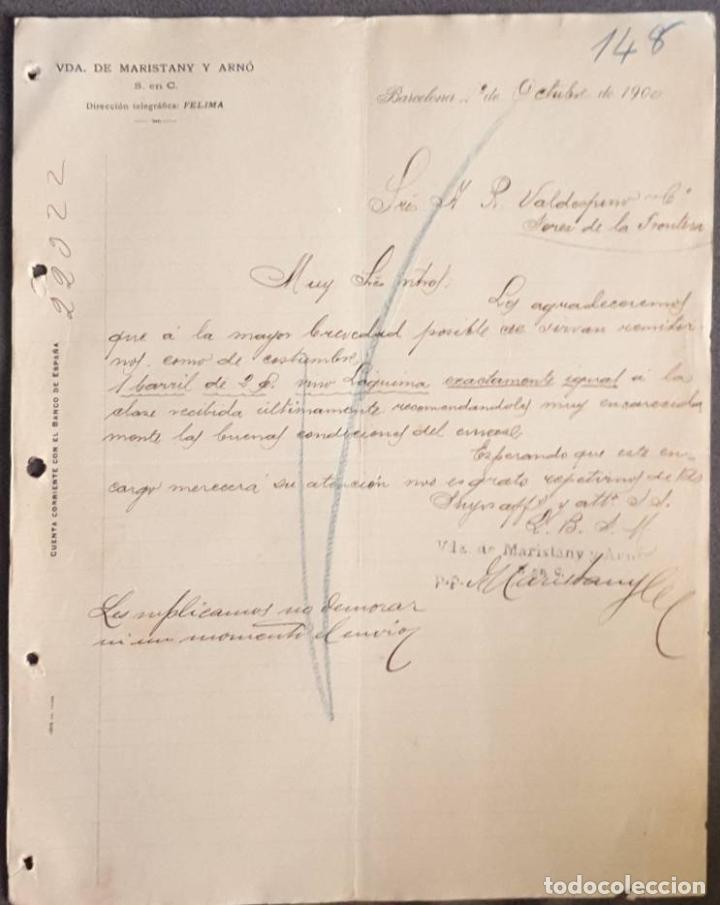 148
VDA. DE MARISTANY Y ARNÓ
S. en C.
Dirección telegráfica: FELIMA
Barcelona 1º de Octubre de 1900
Sres A. R. Valdespino y Cº
Jerez de la Frontera
22022
Muy Sres ntros.
Les agradeceremos
que á la mayor brevedad posible se sirvan remitir
nos, como de costumbre,
1 barril de 2 @. vino Lágrima exactamente igual á la
clase recibida últimamente recomendandoles muy encarecida
mente las buenas condiciones del envase
Esperando que este en-
cargo merecerá su atención nos es grato repetirnos de Vds
Suyos affs y attº S. S.
Q. B. S. M
Vda. de Maristany y Arnó
P.P. Maristany
Les suplicamos no demorar
ni un momento el envío
CUENTA CORRIENTE CON EL BANCO DE ESPAÑA
todocoleccion.net